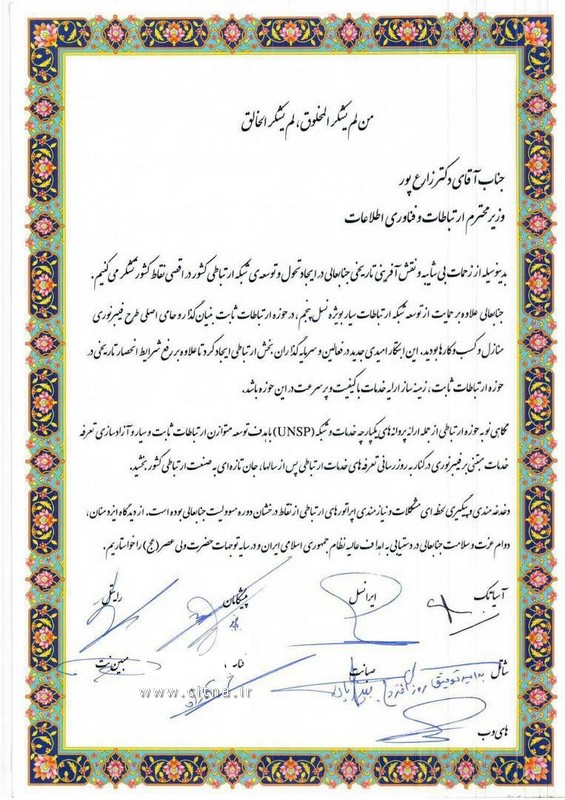 من لم یشکر المخلوق، لم یشکر الخالق
جناب آقای دکتر زارع پور
وزیر محترم ارتباطات و فناوری اطلاعات
بدینوسیله از زحمات بی شایبه و نقش آفرینی تاریخی جنابعالی در ایجاد تحول و توسعه ی شبکه ارتباطی کشور در اقصی نقاط کشور تشکر می کنیم.
جنابعالی علاوه بر حمایت از توسعه شبکه ارتباطات سیار بویژه نسل پنجم، در حوزه ارتباطات ثابت بنیان گذار و حامی اصلی طرح فیبرنوری
منازل و کسب و کارها بودید. این ابتکار امیدی جدید در فعالین و سرمایه گذاران بخش ارتباطی ایجاد کرد تا علاوه بر رفع شرایط انحصار تاریخی در
حوزه ارتباطات ثابت، زمینه ساز ارایه خدمات باکیفیت و پرسرعت در این حوزه باشد.
نگاهی نو به حوزه ارتباطی از جمله ارائه پروانه های یکپارچه خدمات و شبکه (UNSP) با هدف توسعه متوازن ارتباطات ثابت و سیار و آزادسازی تعرفه
خدمات مبتنی بر فیبرنوری در کنار به روز رسانی تعرفه های خدمات ارتباطی پس از سالها، جان تازه ای به صنعت ارتباطی کشور بخشید.
دغدغه مندی و پیگیری لحظه ای مشکلات و نیازمندی اپراتورهای ارتباطی از نقاط درخشان دوره مسوولیت جنابعالی بوده است. از دیدگاه ایزد منان،
دوام عزت و سلامت جنابعالی در دستیابی به اهداف عالیه نظام جمهوری اسلامی ایران و در سایه توجهات حضرت ولی عصر (عج) را خواستاریم.
آسیاتک ایرانسل پیشگامان رایتل
شاتل صبانت فناپ مبین نت
به امید توفیق روز افزون
های وب
www.citna.ir